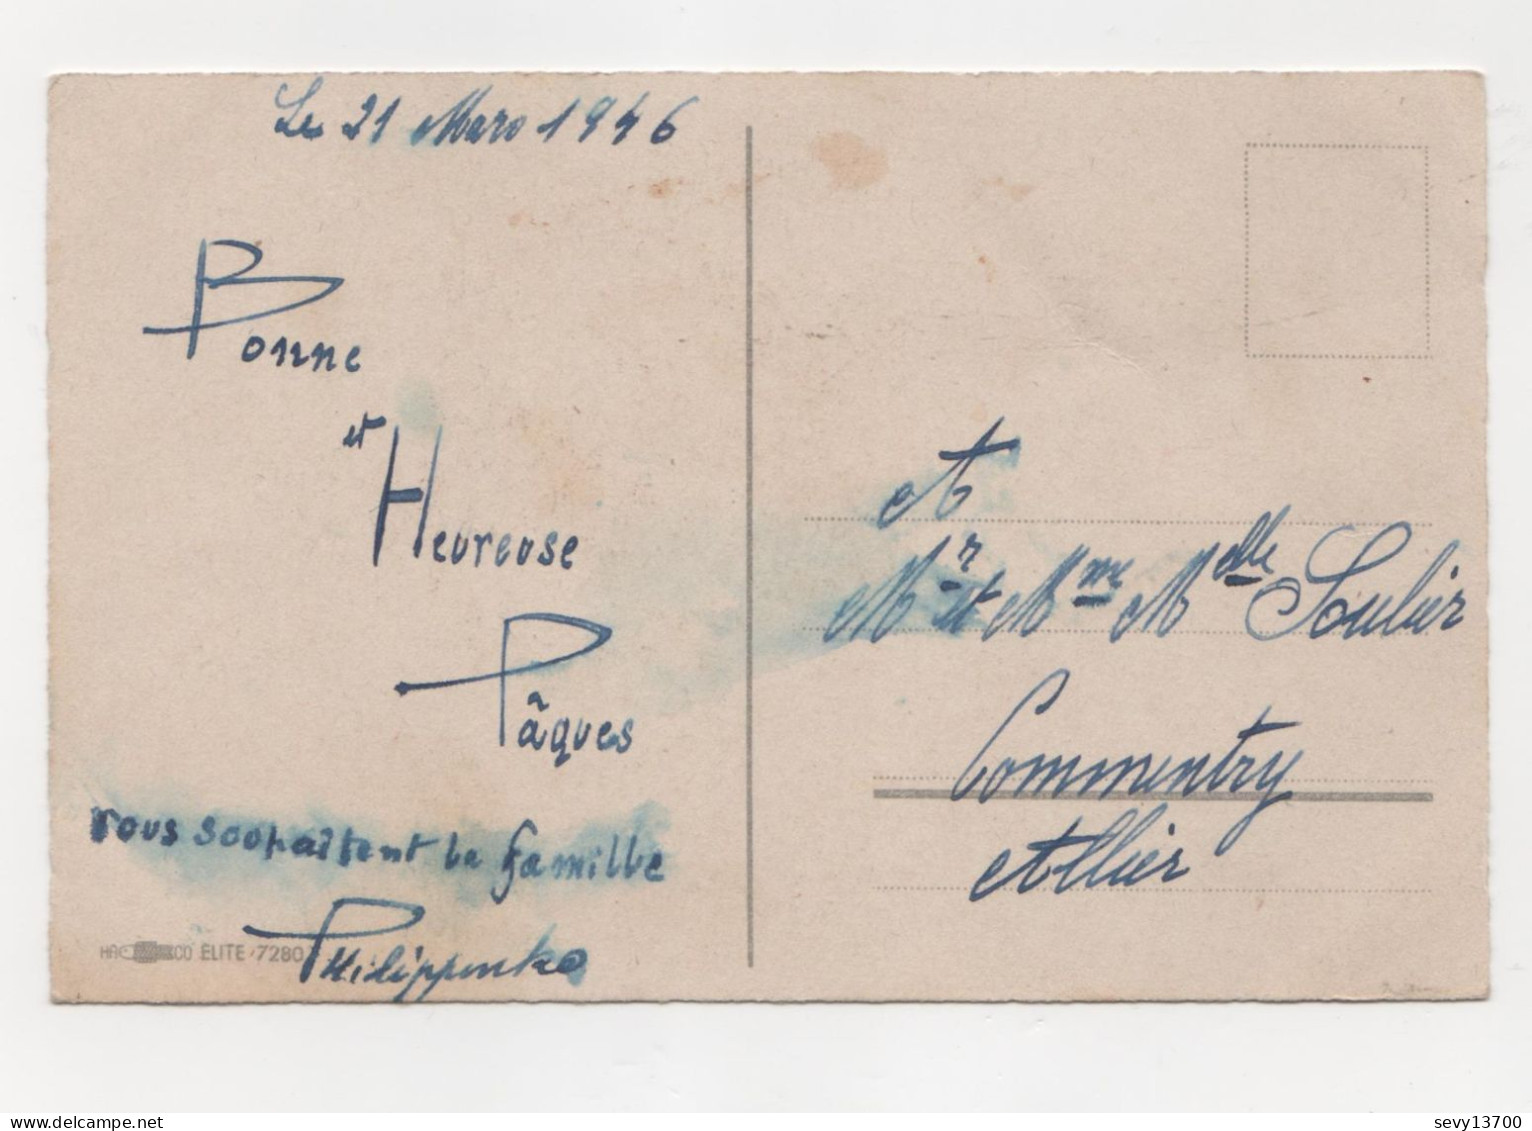 Le 21 Mars 1946
Bonne
et
Heureuse
Pâques
vous souhaitent la famille
Philippenko
ELITE 7280
A
Mr et Mme Melle Soulier
Commentry
Allier
sevy13700